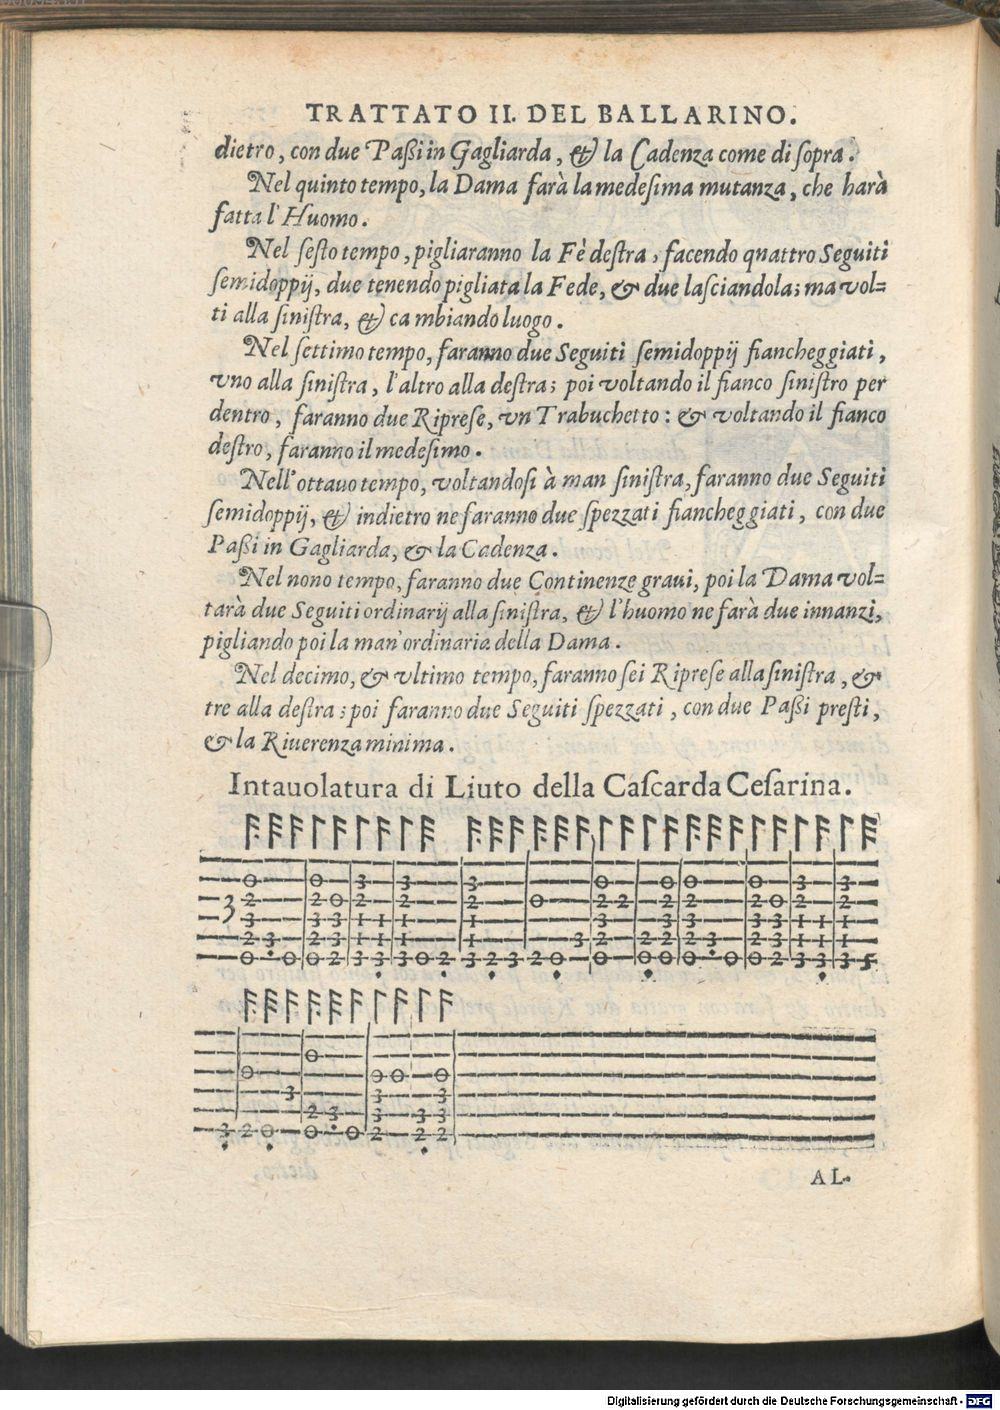 TRATTATO II. DEL BALLARINO.
dietro, con due Paßi in Gagliarda, & la Cadenza come di ſopra.
Nel quinto tempo, la Dama farà la medeſima mutanza, che harà
fatta l'Huomo.
Nel ſeſto tempo, pigliaranno la Fè deſtra, facendo quattro Seguiti
ſemidoppij, due tenendo pigliata la Fede, & due laſciandola; ma vol=
ti alla ſiniſtra, & cambiando luogo.
Nel ſettimo tempo, faranno due Seguiti ſemidoppij fiancheggiati,
vno alla ſiniſtra, l'altro alla deſtra; poi voltando il fianco ſiniſtro per
dentro, faranno due Ripreſe, vn Trabuchetto: & voltando il fianco
deſtro, faranno il medeſimo.
Nell'ottauo tempo, voltandoſi à man ſiniſtra, faranno due Seguiti
ſemidoppij, & indietro ne faranno due ſpezzati fiancheggiati, con due
Paßi in Gagliarda, & la Cadenza.
Nel nono tempo, faranno due Continenze graui, poi la Dama vol=
tarà due Seguiti ordinarij alla ſiniſtra, & l'huomo ne farà due innanzi,
pigliando poi la man'ordinaria della Dama.
Nel decimo, & vltimo tempo, faranno ſei Ripreſe alla ſiniſtra, &
tre alla deſtra; poi faranno due Seguiti ſpezzati, con due Paßi preſti,
& la Riuerenza minima.
Intauolatura di Liuto della Caſcarda Ceſarina.
AL.
Digitalisierung gefördert durch die Deutsche Forschungsgemeinschaft - DFG